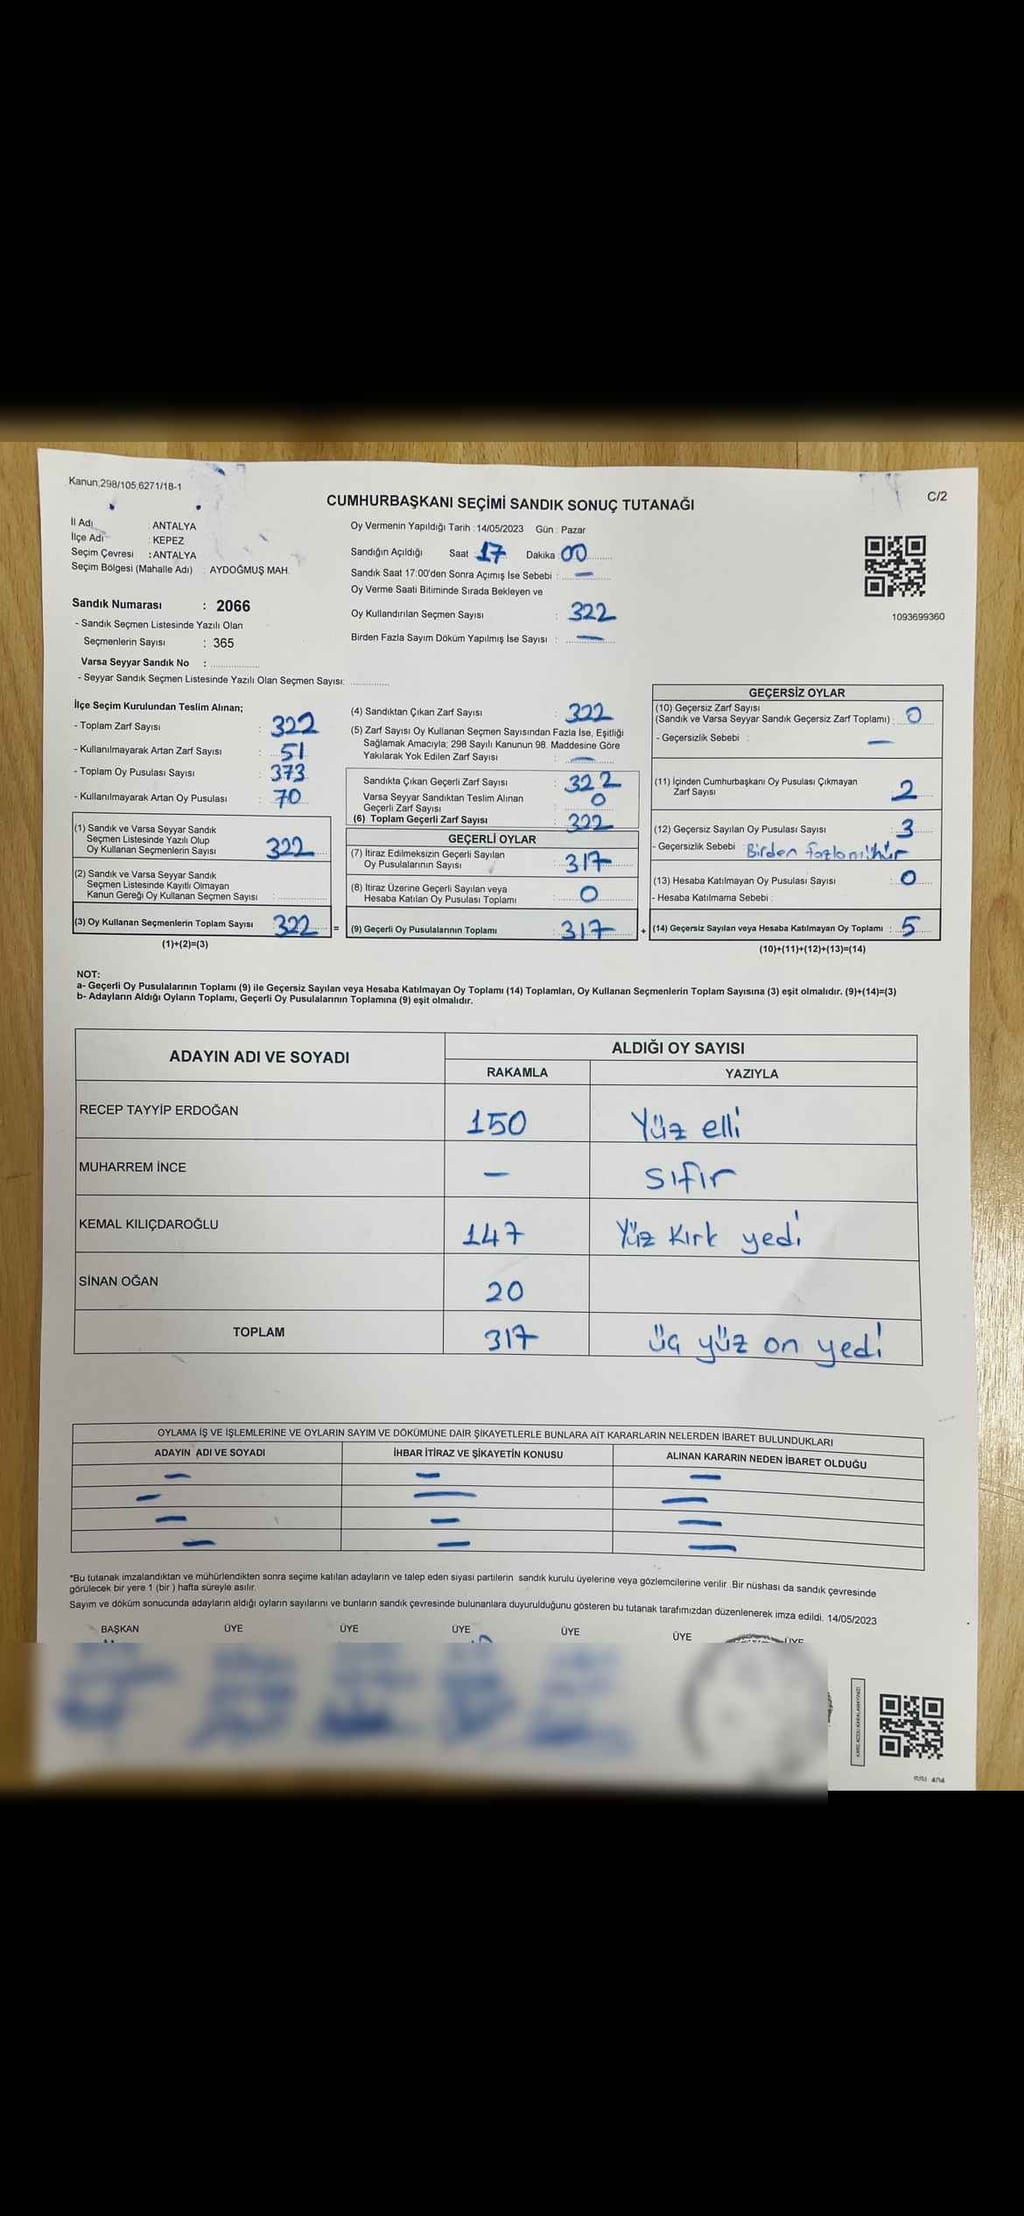 Kanun,298/105,6271/18-1
C/2
CUMHURBAŞKANI SEÇİMİ SANDIK SONUÇ TUTANAĞI
İl Adı : ANTALYA
İlçe Adı : KEPEZ
Seçim Çevresi : ANTALYA
Seçim Bölgesi (Mahalle Adı) : AYDOĞMUŞ MAH.
Sandık Numarası : 2066
- Sandık Seçmen Listesinde Yazılı Olan
Seçmenlerin Sayısı : 365
Varsa Seyyar Sandık No :
- Seyyar Sandık Seçmen Listesinde Yazılı Olan Seçmen Sayısı:
Oy Vermenin Yapıldığı Tarih : 14/05/2023 Gün : Pazar
Sandığın Açıldığı Saat : 17 Dakika : 00
Sandık Saat 17:00'den Sonra Açımış İse Sebebi : —
Oy Verme Saati Bitiminde Sırada Bekleyen ve
Oy Kullandırılan Seçmen Sayısı : 322
Birden Fazla Sayım Döküm Yapılmış İse Sayısı : —
1093699360
İlçe Seçim Kurulundan Teslim Alınan;
- Toplam Zarf Sayısı : 322
- Kullanılmayarak Artan Zarf Sayısı : 51
- Toplam Oy Pusulası Sayısı : 373
- Kullanılmayarak Artan Oy Pusulası : 70
(1) Sandık ve Varsa Seyyar Sandık
Seçmen Listesinde Yazılı Olup
Oy Kullanan Seçmenlerin Sayısı : 322
(2) Sandık ve Varsa Seyyar Sandık
Seçmen Listesinde Kayıtlı Olmayan
Kanun Gereği Oy Kullanan Seçmen Sayısı :
(3) Oy Kullanan Seçmenlerin Toplam Sayısı : 322 =
(1)+(2)=(3)
(4) Sandıktan Çıkan Zarf Sayısı : 322
(5) Zarf Sayısı Oy Kullanan Seçmen Sayısından Fazla İse, Eşitliği
Sağlamak Amacıyla; 298 Sayılı Kanunun 98. Maddesine Göre
Yakılarak Yok Edilen Zarf Sayısı : —
Sandıkta Çıkan Geçerli Zarf Sayısı : 322
Varsa Seyyar Sandıktan Teslim Alınan
Geçerli Zarf Sayısı : 0
(6) Toplam Geçerli Zarf Sayısı : 322
GEÇERLİ OYLAR
(7) İtiraz Edilmeksizin Geçerli Sayılan
Oy Pusulalarının Sayısı : 317
(8) İtiraz Üzerine Geçerli Sayılan veya
Hesaba Katılan Oy Pusulası Toplamı : 0
(9) Geçerli Oy Pusulalarının Toplamı : 317 +
GEÇERSİZ OYLAR
(10) Geçersiz Zarf Sayısı
(Sandık ve Varsa Seyyar Sandık Geçersiz Zarf Toplamı) : 0
- Geçersizlik Sebebi : —
(11) İçinden Cumhurbaşkanı Oy Pusulası Çıkmayan
Zarf Sayısı : 2
(12) Geçersiz Sayılan Oy Pusulası Sayısı : 3
- Geçersizlik Sebebi : Birden fazla mühür
(13) Hesaba Katılmayan Oy Pusulası Sayısı : 0
- Hesaba Katılmama Sebebi :
(14) Geçersiz Sayılan veya Hesaba Katılmayan Oy Toplamı : 5
(10)+(11)+(12)+(13)=(14)
NOT:
a- Geçerli Oy Pusulalarının Toplamı (9) ile Geçersiz Sayılan veya Hesaba Katılmayan Oy Toplamı (14) Toplamları, Oy Kullanan Seçmenlerin Toplam Sayısına (3) eşit olmalıdır. (9)+(14)=(3)
b- Adayların Aldığı Oyların Toplamı, Geçerli Oy Pusulalarının Toplamına (9) eşit olmalıdır.
ADAYIN ADI VE SOYADI ALDIĞI OY SAYISI
RAKAMLA YAZIYLA
RECEP TAYYİP ERDOĞAN 150 Yüz elli
MUHARREM İNCE — sıfır
KEMAL KILIÇDAROĞLU 147 Yüz kırk yedi
SİNAN OĞAN 20
TOPLAM 317 üç yüz on yedi
OYLAMA İŞ VE İŞLEMLERİNE VE OYLARIN SAYIM VE DÖKÜMÜNE DAİR ŞİKAYETLERLE BUNLARA AİT KARARLARIN NELERDEN İBARET BULUNDUKLARI
ADAYIN ADI VE SOYADI İHBAR İTİRAZ VE ŞİKAYETİN KONUSU ALINAN KARARIN NEDEN İBARET OLDUĞU
— — —
— — —
— — —
— — —
"Bu tutanak imzalandıktan ve mühürlendikten sonra seçime katılan adayların ve talep eden siyasi partilerin sandık kurulu üyelerine veya gözlemcilerine verilir. Bir nüshası da sandık çevresinde
görülecek bir yere 1 (bir) hafta süreyle asılır.
Sayım ve döküm sonucunda adayların aldığı oyların sayılarını ve bunların sandık çevresinde bulunanlara duyurulduğunu gösteren bu tutanak tarafımızdan düzenlenerek imza edildi. 14/05/2023
BAŞKAN ÜYE ÜYE ÜYE ÜYE ÜYE ÜYE